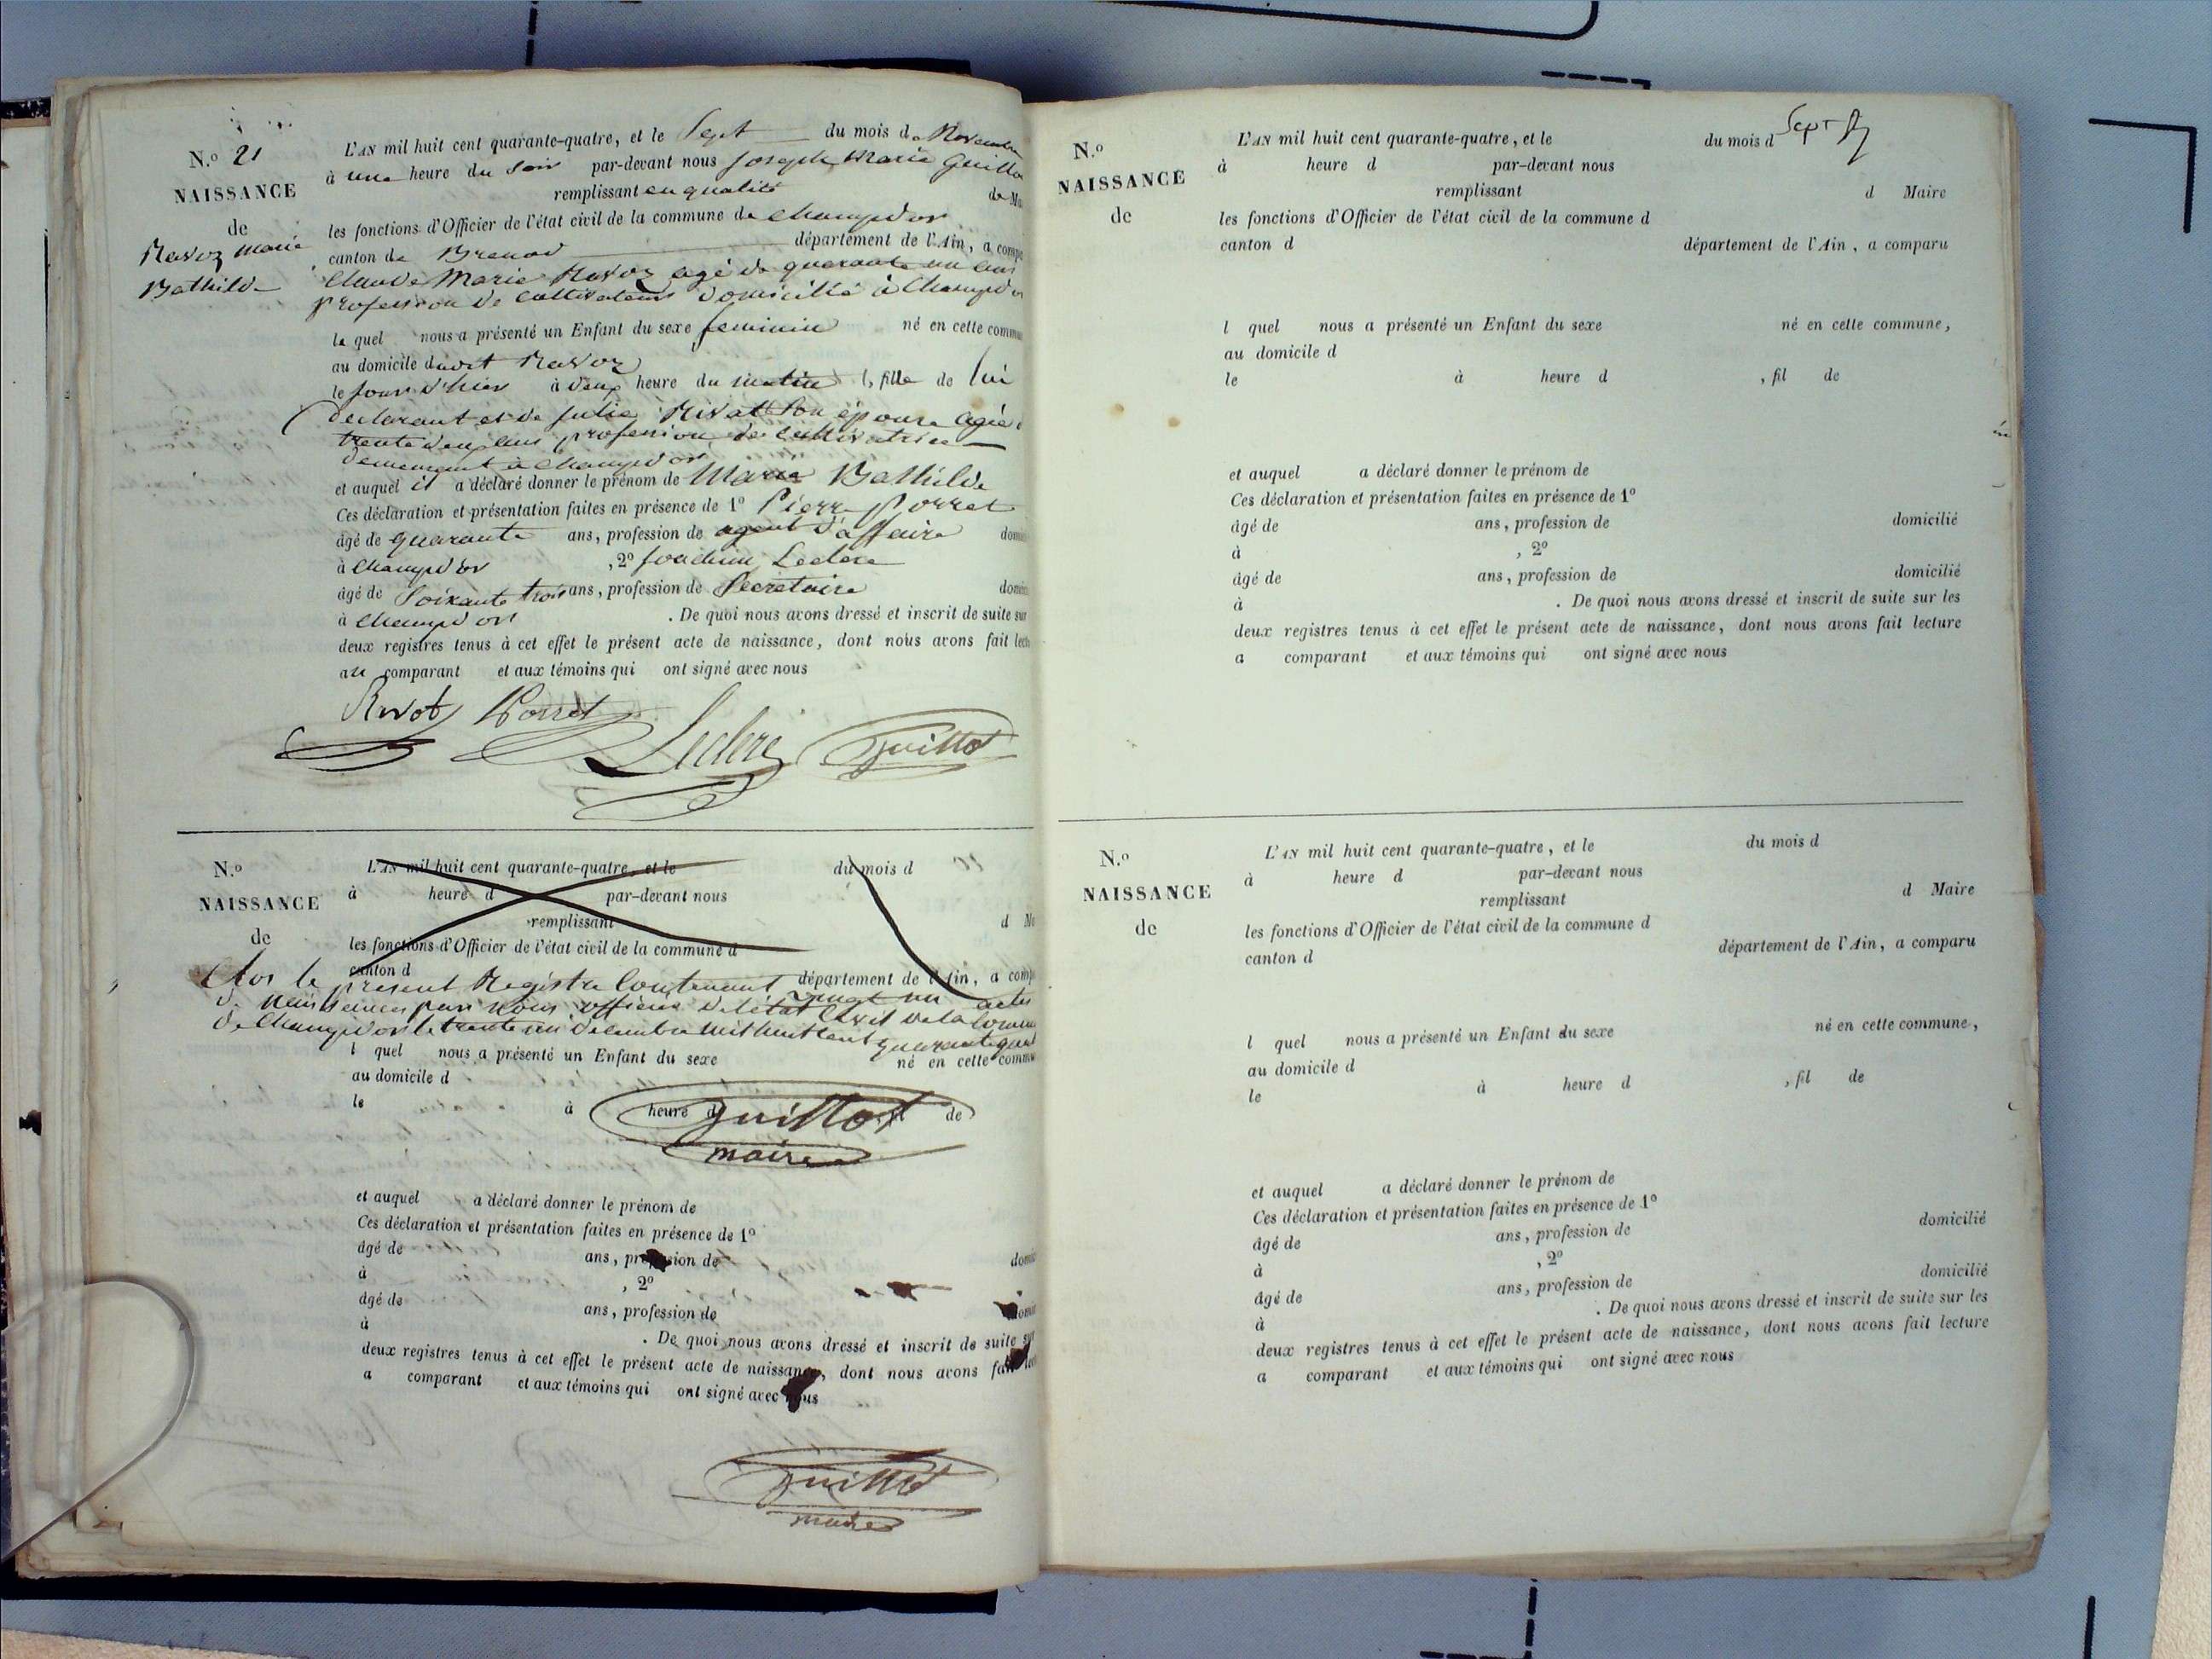 N.º 21
NAISSANCE
de
Ravoz Marie
Bathilde
L'AN mil huit cent quarante-quatre, et le Sept du mois de Novembre
à une heure du Soir par-devant nous Joseph Marie Guillo
remplissant en qualité de Ma
les fonctions d'Officier de l'état civil de la commune de Champdor
canton de Brenod département de l'Ain, a compa
Claude Marie Ravoz agé de quarante un ans
profession de Cultivateur domicilié à Champdor
le quel nous a présenté un Enfant du sexe feminin né en cette commu
au domicile dudit Ravoz
le Jour d'hier à deux heure du matin, fille de lui
declarant et de Julie Rivat Son épouse agée d
trente deux ans profession de cultivatrice
demeurant à Champdor
et auquel il a déclaré donner le prénom de Marie Bathilde
Ces déclaration et présentation faites en présence de 1º Pierre Porret
âgé de quarante ans, profession de agent d'affaire domi
à Champdor , 2º Joachim Leclerc
âgé de Soixante trois ans, profession de Secretaire domi
à Champdor . De quoi nous avons dressé et inscrit de suite sur
deux registres tenus à cet effet le présent acte de naissance, dont nous avons fait lect
au comparant et aux témoins qui ont signé avec nous
Porret
Leclerc Guillot
N.º
NAISSANCE
de
L'AN mil huit cent quarante-quatre, et le du mois d
à heure d par-devant nous
remplissant d Ma
les fonctions d'Officier de l'état civil de la commune d
canton d département de l'Ain, a comp
Clos le présent Registre Contenant vingt un actes
de naissances par Nous officier de l'état Civil de la Commu
de Champdor le trente un décembre mil huit cent quarante quat
l quel nous a présenté un Enfant du sexe né en cette commu
au domicile d
le à heure d fil de
Guillot
maire
et auquel a déclaré donner le prénom de
Ces déclaration et présentation faites en présence de 1º
âgé de ans, profession de domi
à , 2º
âgé de ans, profession de domi
à . De quoi nous avons dressé et inscrit de suite sur
deux registres tenus à cet effet le présent acte de naissance, dont nous avons fait lec
a comparant et aux témoins qui ont signé avec nous
Guillot
maire
Sept
N.º
NAISSANCE
de
L'AN mil huit cent quarante-quatre, et le du mois d
à heure d par-devant nous
remplissant d Maire
les fonctions d'Officier de l'état civil de la commune d
canton d département de l'Ain, a comparu
l quel nous a présenté un Enfant du sexe né en cette commune,
au domicile d
le à heure d , fil de
et auquel a déclaré donner le prénom de
Ces déclaration et présentation faites en présence de 1º
âgé de ans, profession de domicilié
à , 2º
âgé de ans, profession de domicilié
à . De quoi nous avons dressé et inscrit de suite sur les
deux registres tenus à cet effet le présent acte de naissance, dont nous avons fait lecture
a comparant et aux témoins qui ont signé avec nous
N.º
NAISSANCE
de
L'AN mil huit cent quarante-quatre, et le du mois d
à heure d par-devant nous
remplissant d Maire
les fonctions d'Officier de l'état civil de la commune d
canton d département de l'Ain, a comparu
l quel nous a présenté un Enfant du sexe né en cette commune,
au domicile d
le à heure d , fil de
et auquel a déclaré donner le prénom de
Ces déclaration et présentation faites en présence de 1º
âgé de ans, profession de domicilié
à , 2º
âgé de ans, profession de domicilié
à . De quoi nous avons dressé et inscrit de suite sur les
deux registres tenus à cet effet le présent acte de naissance, dont nous avons fait lecture
a comparant et aux témoins qui ont signé avec nous